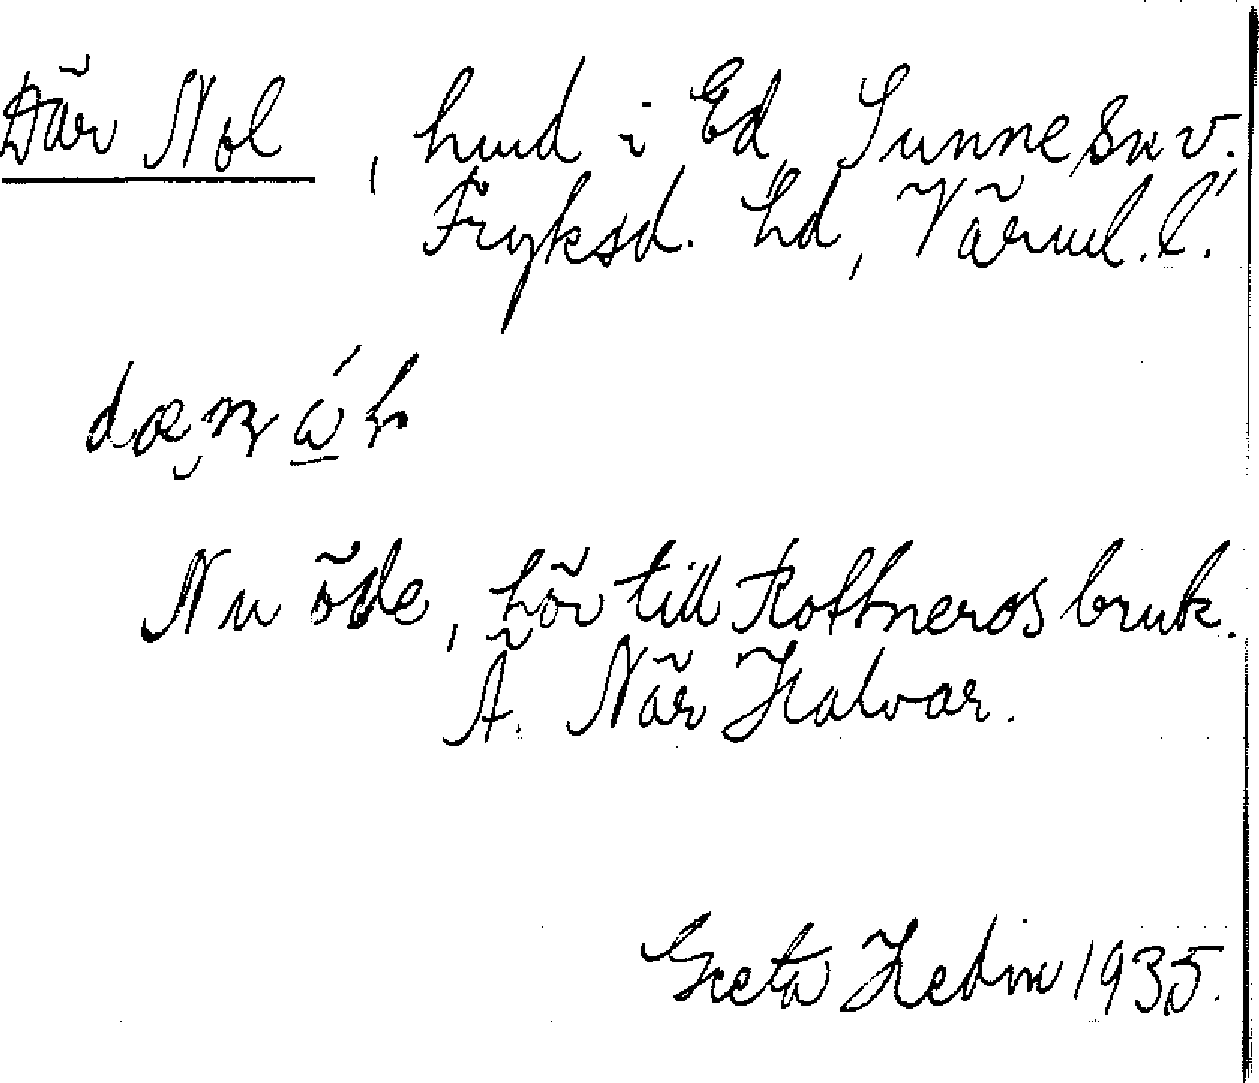 Där Nol, hmd i Ed, Sunne sn v.
Fryksd. hd, Värml. l.
Nu öde, hör till Rottneros bruk.
Ä. När Halvar.
Greta Hedin 1935.